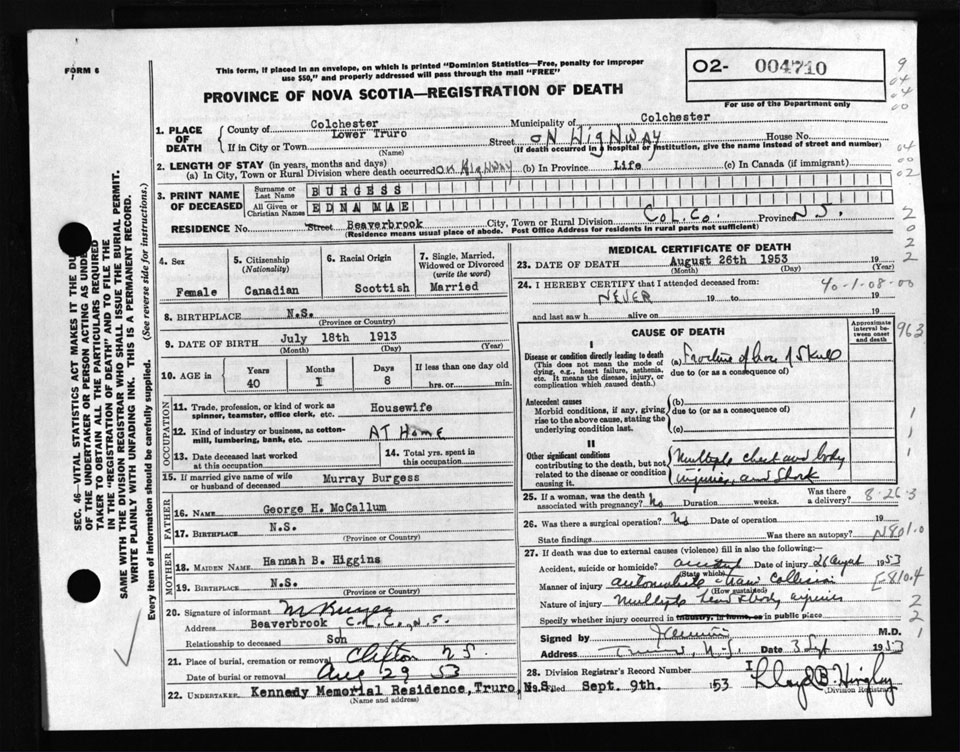 FORM 6
This form, if placed in an envelope, on which is printed "Dominion Statistics—Free, penalty for improper
use $50," and properly addressed will pass through the mail "FREE"
O2- 004710
For use of the Department only
PROVINCE OF NOVA SCOTIA—REGISTRATION OF DEATH
1. PLACE OF DEATH
County of Colchester Municipality of Colchester
If in City or Town Lower Truro Street ON HIGHWAY House No.
(Name) (If death occurred in a hospital or institution, give the name instead of street and number)
2. LENGTH OF STAY (in years, months and days)
(a) In City, Town or Rural Division where death occurred ON HIGHWAY (b) In Province Life (c) In Canada (if immigrant)
3. PRINT NAME OF DECEASED
Surname or Last Name BURGESS
All Given or Christian Names EDNA MAE
RESIDENCE No. Street Beaverbrook City, Town or Rural Division Col. Co. Province N.S.
(Residence means usual place of abode. Post Office Address for residents in rural parts not sufficient)
4. Sex Female
5. Citizenship (Nationality) Canadian
6. Racial Origin Scottish
7. Single, Married, Widowed or Divorced (write the word) Married
8. BIRTHPLACE N.S.
(Province or Country)
9. DATE OF BIRTH July 18th 1913
(Month) (Day) (Year)
10. AGE in Years 40 Months 1 Days 8 If less than one day old hrs. or min.
OCCUPATION
11. Trade, profession, or kind of work as spinner, teamster, office clerk, etc. Housewife
12. Kind of industry or business, as cotton-mill, lumbering, bank, etc. AT HOME
13. Date deceased last worked at this occupation
14. Total yrs. spent in this occupation
15. If married give name of wife or husband of deceased Murray Burgess
FATHER
16. NAME George H. McCallum
17. BIRTHPLACE N.S.
(Province or Country)
MOTHER
18. MAIDEN NAME Hannah B. Higgins
19. BIRTHPLACE N.S.
(Province or Country)
20. Signature of informant M Burgess
Address Beaverbrook C. N.S.
Relationship to deceased Son
21. Place of burial, cremation or removal Clifton N S.
Date of burial or removal Aug 29 53
22. UNDERTAKER Kennedy Memorial Residence, Truro, N.S.
(Name and address)
MEDICAL CERTIFICATE OF DEATH
23. DATE OF DEATH August 26th 1953 19
(Month) (Day) (Year)
24. I HEREBY CERTIFY that I attended deceased from:
NEVER 19 to 19
and last saw h alive on 19
40-1-08-00
CAUSE OF DEATH
Approximate interval between onset and death
I
Disease or condition directly leading to death
(This does not mean the mode of dying, e.g., heart failure, asthenia, etc. It means the disease, injury, or complication which caused death.)
(a) Fracture of base of Skull
due to (or as a consequence of)
Antecedent causes
Morbid conditions, if any, giving rise to the above cause, stating the underlying condition last.
(b)
due to (or as a consequence of)
(c)
II
Other significant conditions
contributing to the death, but not related to the disease or condition causing it.
Multiple chest and body
injuries, and Shock
25. If a woman, was the death associated with pregnancy? No Duration weeks. Was there a delivery?
8-26-3
26. Was there a surgical operation? No Date of operation 19
State findings Was there an autopsy?
N801.0
27. If death was due to external causes (violence) fill in also the following:—
Accident, suicide or homicide? accident Date of injury 26 August 1953
(State which)
Manner of injury automobile - Train Collision
(How sustained)
E-810.4
Nature of injury Multiple head & body injuries
Specify whether injury occurred in industry, in home, or in public place
Signed by M.D.
Address Truro, N.S. Date 3 Sept 1953
28. Division Registrar's Record Number
Filed Sept. 9th. 153 Lloyd B. Hingley
Division Registrar
SEC. 46—VITAL STATISTICS ACT MAKES IT THE DUTY
OF THE UNDERTAKER OR PERSON ACTING AS UNDER-
TAKER TO OBTAIN ALL THE PARTICULARS REQUIRED
IN THE "REGISTRATION OF DEATH" AND TO FILE THE
SAME WITH THE DIVISION REGISTRAR WHO SHALL ISSUE THE BURIAL PERMIT.
WRITE PLAINLY WITH UNFADING INK. THIS IS A PERMANENT RECORD.
Every item of information should be carefully supplied. (See reverse side for instructions.)
9
04
04
00
04
00
02
2
0
2
2
963
1
1
1
2
2
1